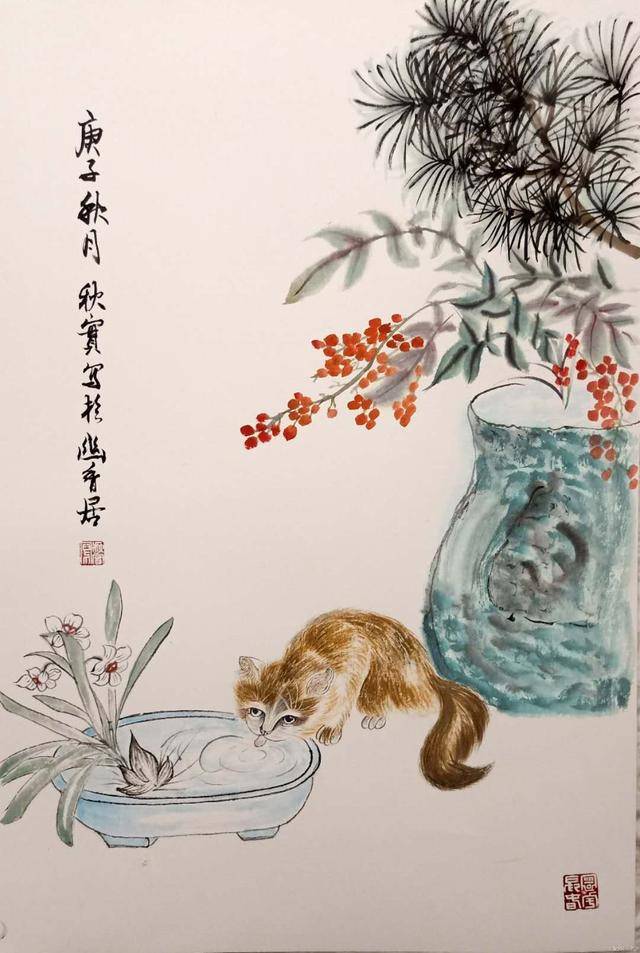 庚子秋月 秋實写於幽香居